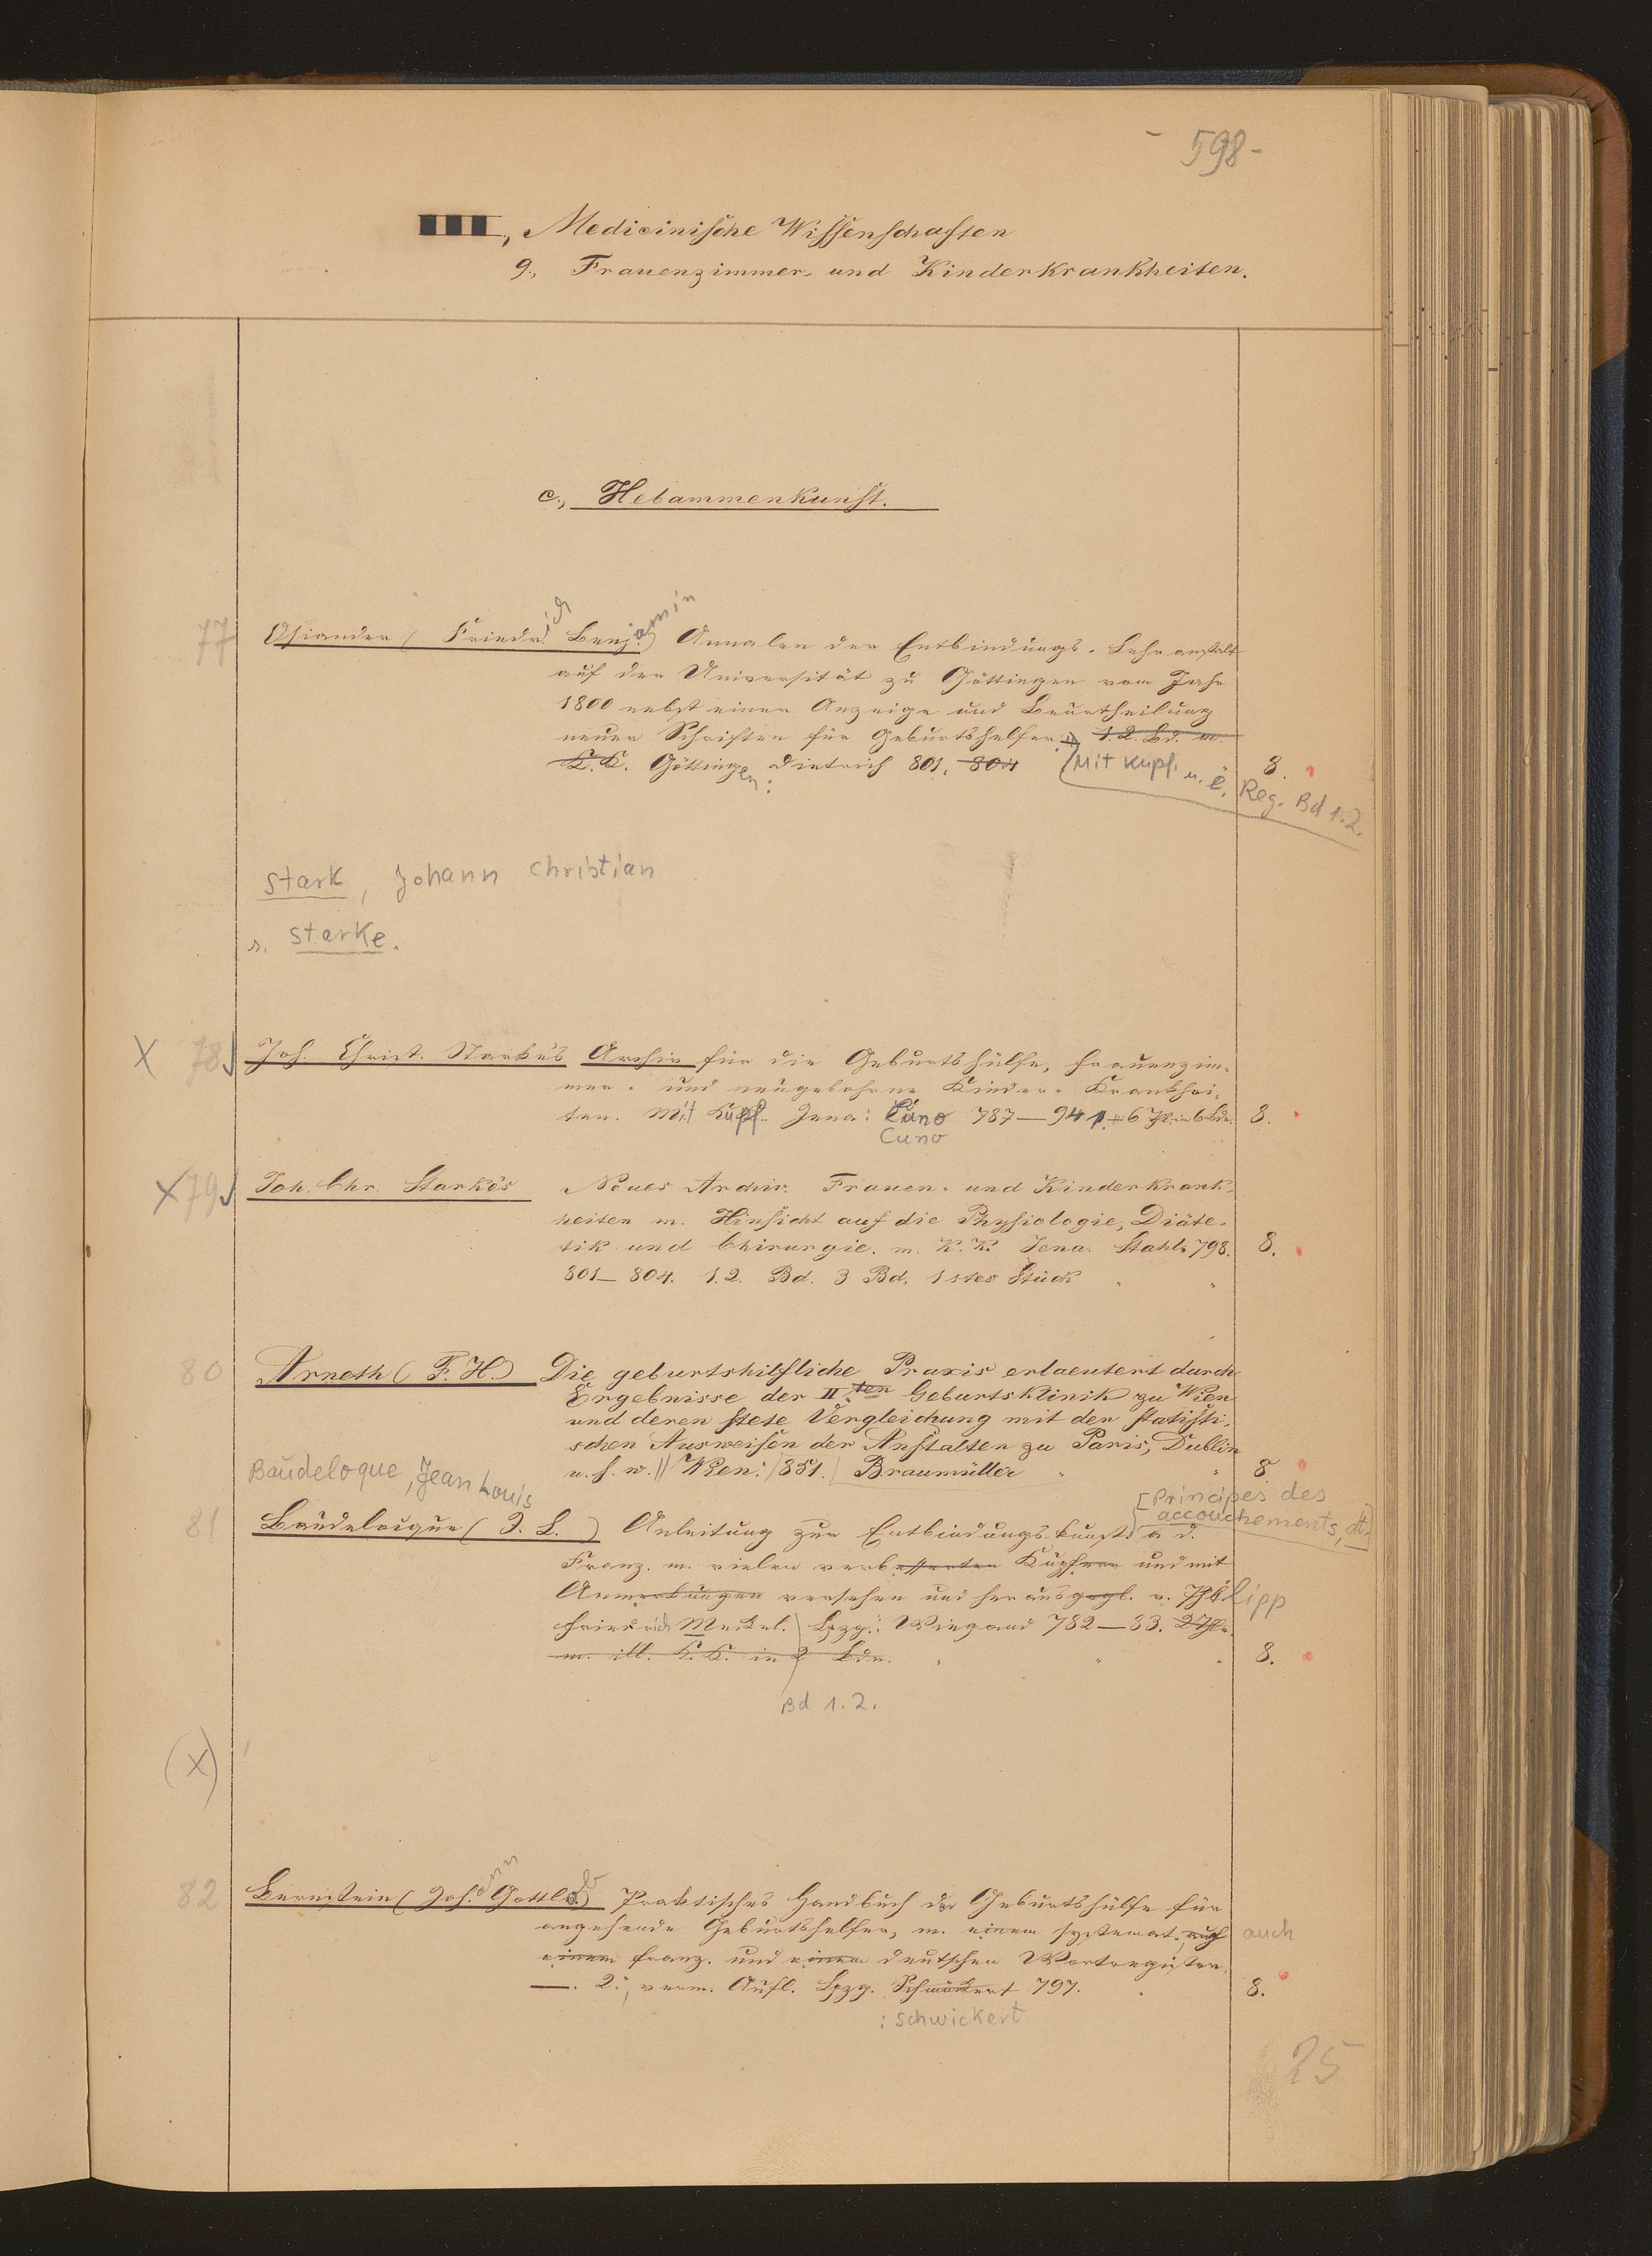 - 598 -
III, Medicinische Wissenschaften
9., Frauenzimmer- und Kinderkrankheiten.
c., Hebammenkunst.
77 Osiander (Friedrich Benjamin) Annalen der Entbindungs-Lehranstalt
auf der Universität zu Göttingen vom Jahr
1800 nebst einer Anzeige und Beurtheilung
neuer Schriften für Geburtshelfer. 1. 2. Bd. m.
K. K. Göttingen: Dietrich 801. 804 8.
Mit Kupf. u. e. Reg. Bd 1.2.
Stark, Johann Christian
s. Starke.
X 78 Joh. Christ. Starke's Archiv für die Geburtshülfe, Frauenzim-
mer- und neugebohrne Kinder-Krankhei-
ten. Mit Kupf. Jena: Cuno 787—94 1.–6 Thl. in 6 Bdn. 8.
Cuno
X 79 Joh. Chr. Starke's Neues Archiv. Frauen- und Kinderkrank-
heiten m. Hinsicht auf die Physiologie, Diäte-
tik und Chirurgie. m. K. K. Jena. Stahl 798. 8.
801–804. 1. 2. Bd. 3 Bd. 1stes Stück
80 Arneth (F. H.) Die geburtshilfliche Praxis erlaeutert durch
Ergebnisse der II.ten Geburtsklinik zu Wien
und deren stete Vergleichung mit den statisti-
schen Ausweisen der Anstalten zu Paris, Dublin
u. s. w. // Wien: 1851. Braumüller 8
Baudeloque, Jean Louis
[Principes des
accouchements, dt.]
81 Baudeloique (J. L.) Anleitung zur Entbindungskunst a d.
Franz. m. vielen verbesserten Kupfern und mit
Anmerkungen versehen und herausgegb. v. Philipp
Friedrich Meckel. Lpzg.: Weigand 782–83. 2 Thle.
m. ill. K. K. in 2 Bdn. 8.
Bd 1.2.
(X)
82 Bernstein (Johann Gottlob) Praktisches Handbuch der Geburtshülfe für
angehende Geburtshelfer, m. einem systemat. auch
auch
einem franz. und einem deutschen Wortregister.
—. 2., verm. Aufl. Lpzg. Schwickert 797. 8.
: Schwickert
25